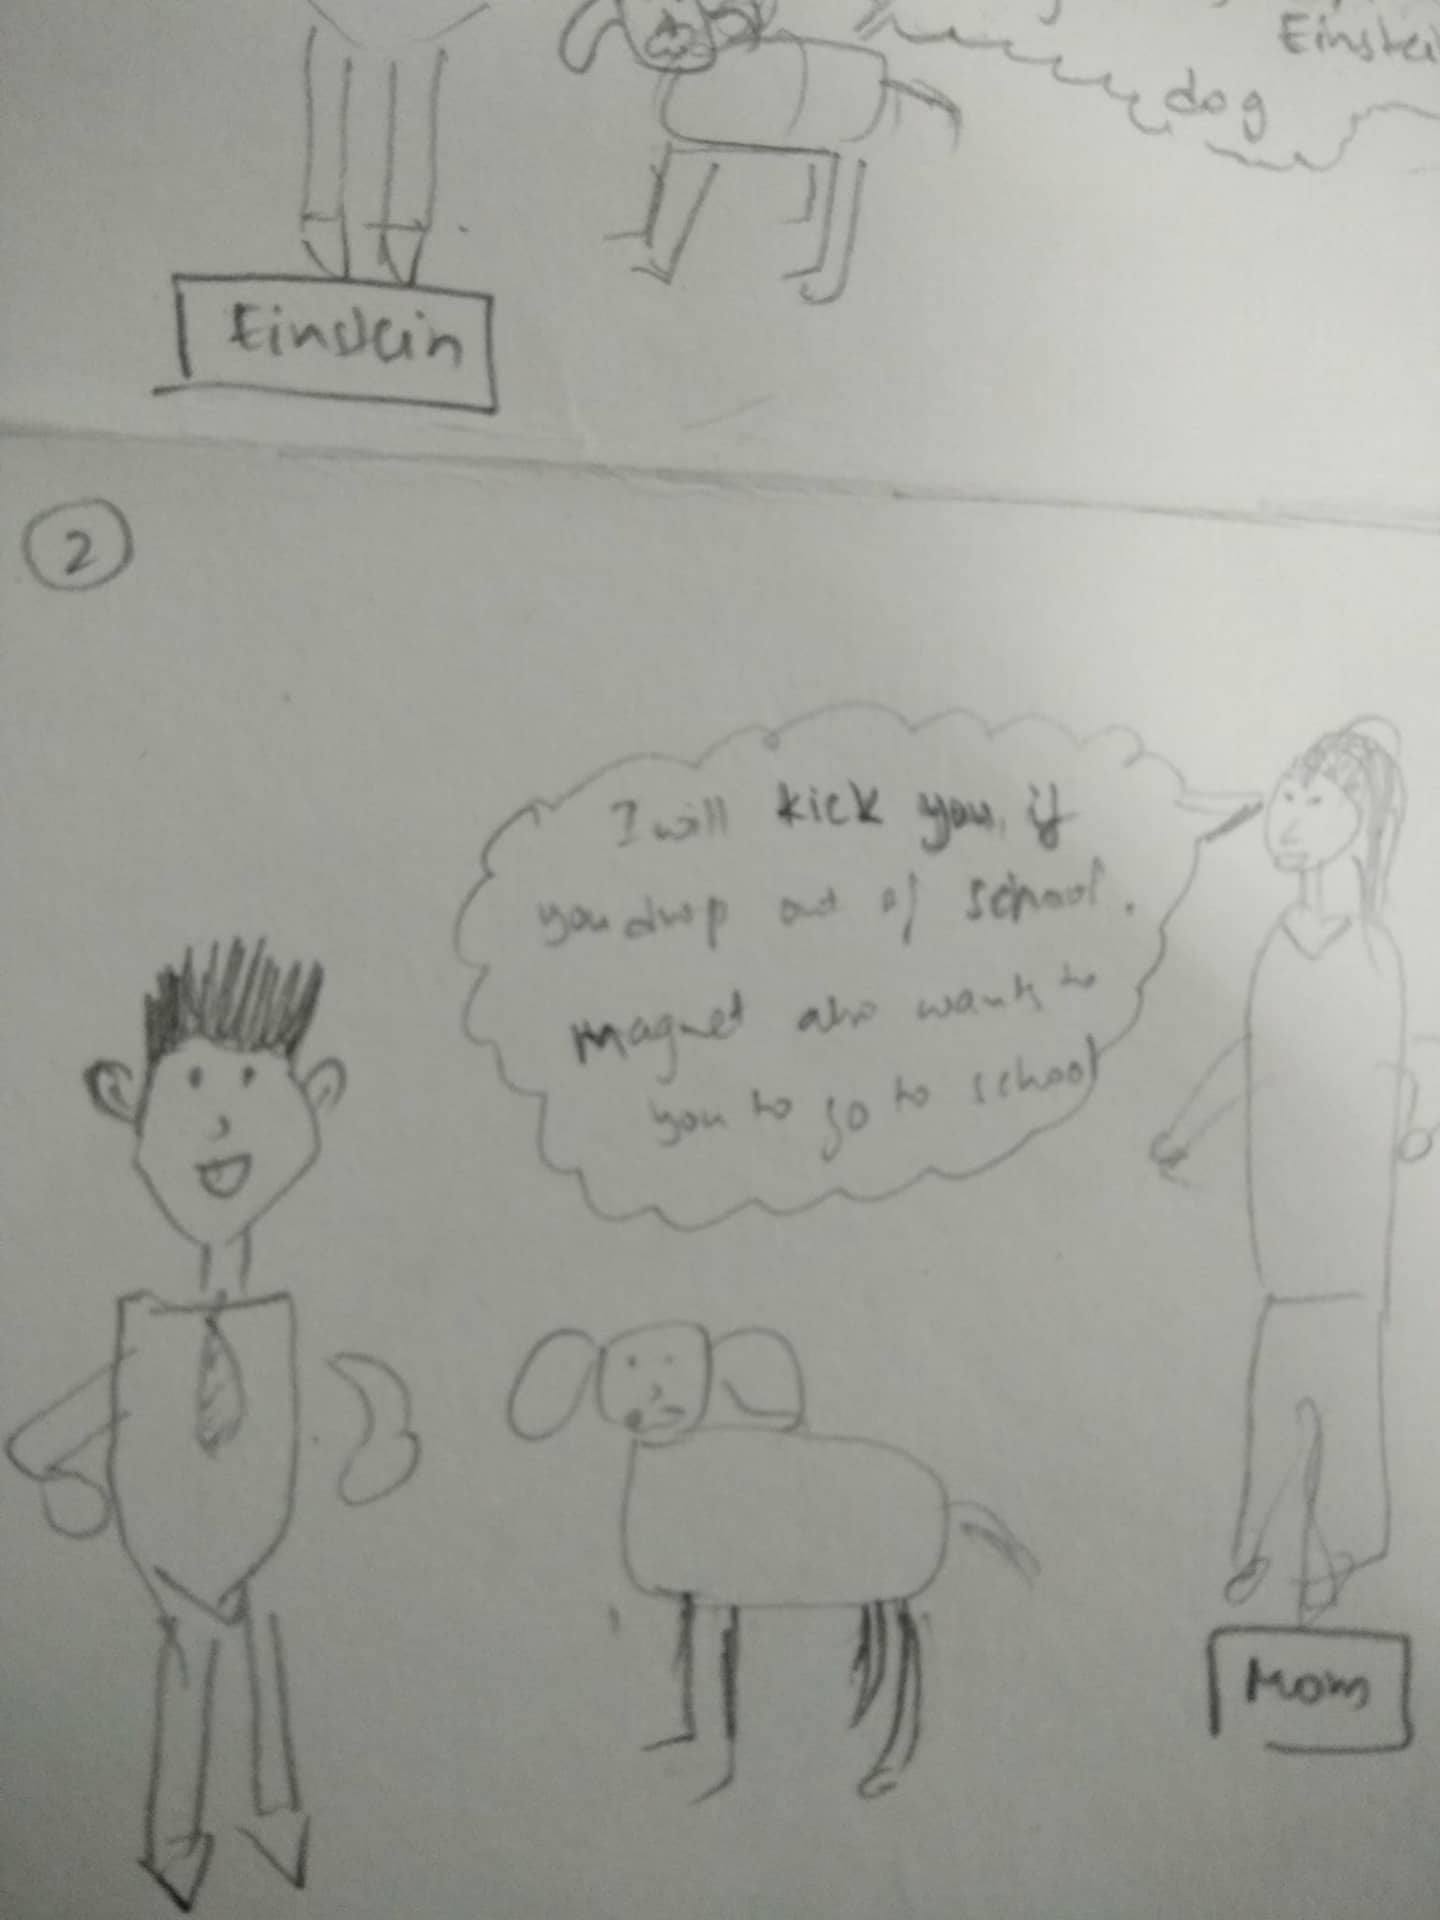 Einstei
dog
Einstein
2
I will kick you, if
you drop out of school.
Magnet also wants to
you to go to school
Mom